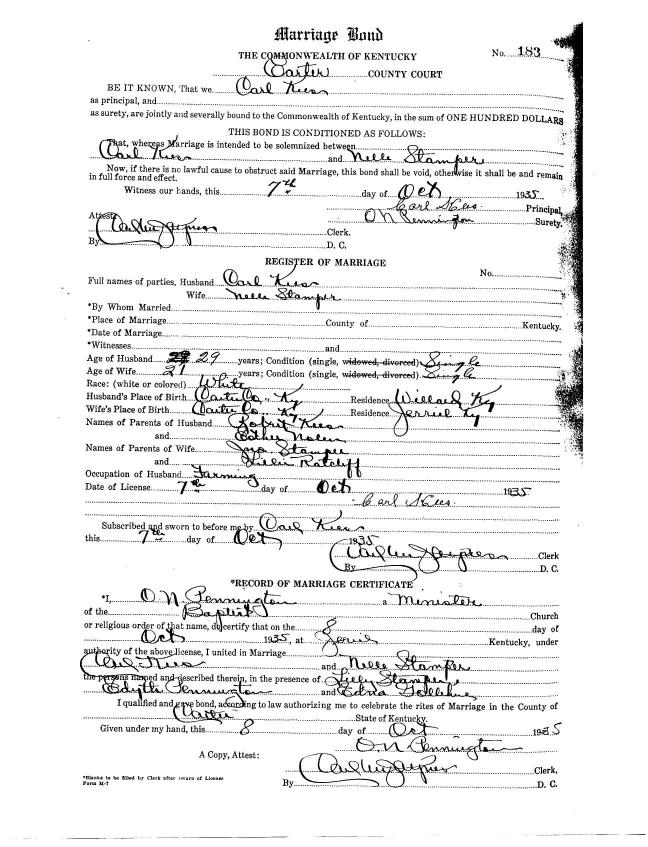 Marriage Bond
No. 183
THE COMMONWEALTH OF KENTUCKY
Carter COUNTY COURT
BE IT KNOWN, That we Carl Kees
as principal, and
as surety, are jointly and severally bound to the Commonwealth of Kentucky, in the sum of ONE HUNDRED DOLLARS
THIS BOND IS CONDITIONED AS FOLLOWS:
That, whereas Marriage is intended to be solemnized between
Carl Kees and Nelle Stamper
Now, if there is no lawful cause to obstruct said Marriage, this bond shall be void, otherwise it shall be and remain
in full force and effect.
Witness our hands, this 7th day of Oct 1935
Carl Kees Principal,
O N Pennington Surety.
Attest:
Clerk.
By D. C.
REGISTER OF MARRIAGE
No.
Full names of parties, Husband Carl Kees
Wife Nelle Stamper
*By Whom Married
*Place of Marriage County of Kentucky.
*Date of Marriage
*Witnesses and
Age of Husband 29 years; Condition (single, widowed, divorced) Single
Age of Wife 21 years; Condition (single, widowed, divorced) Single
Race: (white or colored) White
Husband's Place of Birth Carter Co., Ky Residence Willard Ky
Wife's Place of Birth Carter Co., Ky Residence Jerriel Ky
Names of Parents of Husband Robert Kees
and Nolen
Names of Parents of Wife Stamper
and Ratcliff
Occupation of Husband Farming
Date of License 7th day of Oct 1935
Carl Kees.
Subscribed and sworn to before me by Carl Kees
this 7th day of Oct 1935
Clerk
By D. C.
*RECORD OF MARRIAGE CERTIFICATE
*I, O. N. Pennington a Minister
of the Baptist Church
or religious order of that name, do certify that on the 8 day of
Oct 1935, at Kentucky, under
authority of the above license, I united in Marriage
Carl Kees and Nelle Stamper
the persons named and described therein, in the presence of Lilly Stamper,
Edyth Pennington and Edna
I qualified and gave bond, according to law authorizing me to celebrate the rites of Marriage in the County of
Carter State of Kentucky.
Given under my hand, this 8 day of Oct 1935
O. N. Pennington
A Copy, Attest:
Clerk,
By D. C.
*Blanks to be filled by Clerk after return of License
Form M-7